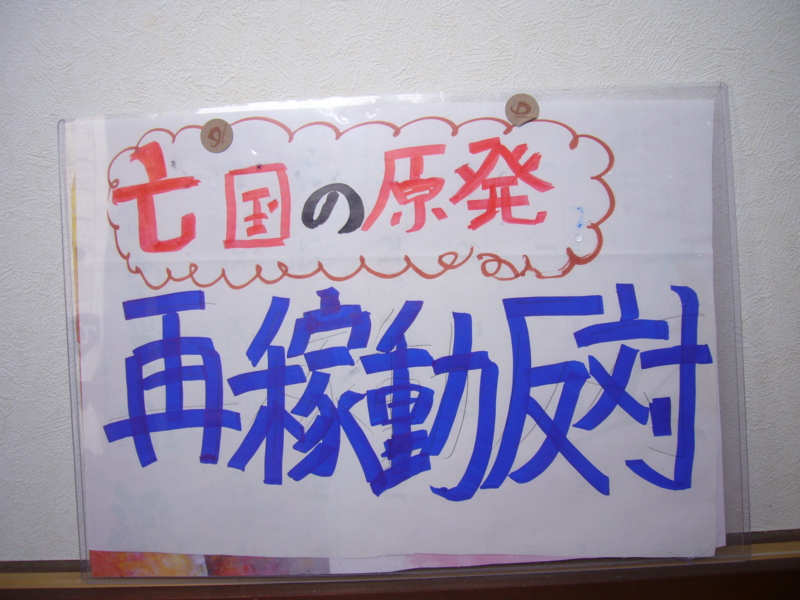 亡国の原発
再稼動反対